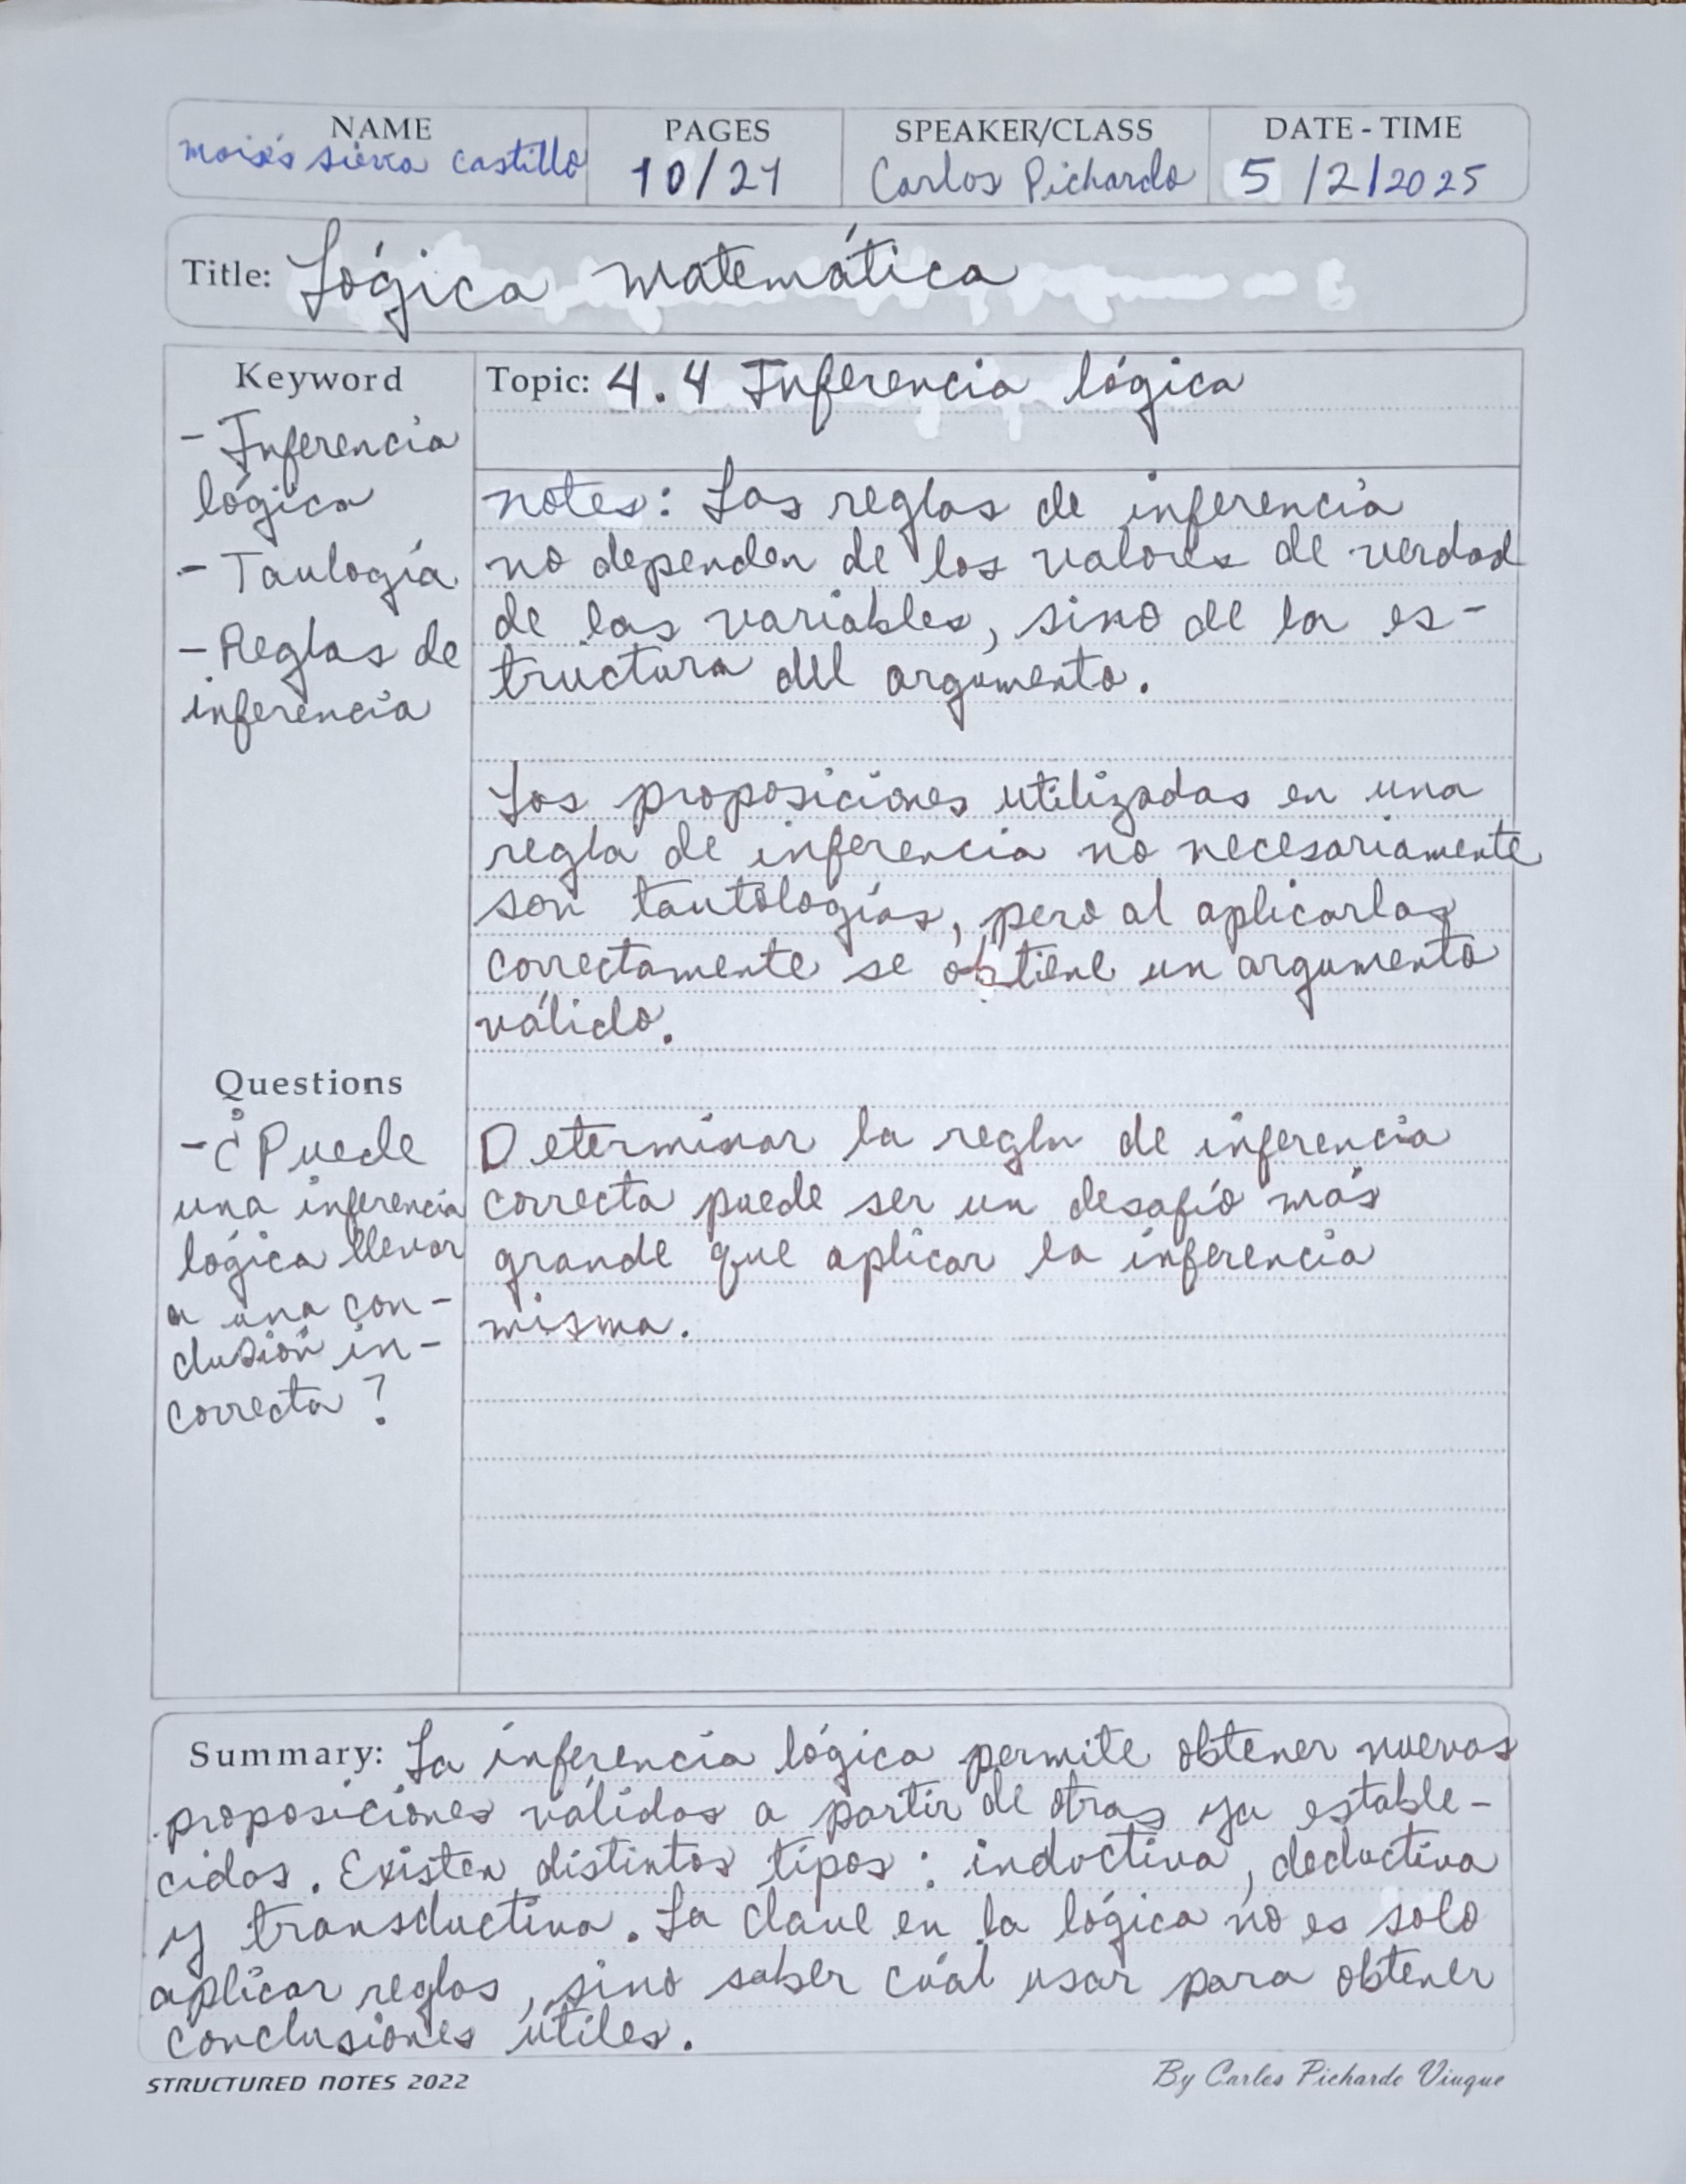 NAME
Moisés Sierra Castillo
PAGES
10/21
SPEAKER/CLASS
Carlos Pichardo
DATE - TIME
5/2/2025
Title: Lógica matemática
Keyword
- Inferencia
lógica
- Taulogía
- Reglas de
inferencia
Questions
- ¿Puede
una inferencia
lógica llevar
a una con-
clusión in-
correcta?
Topic: 4.4 Inferencia lógica
notes: Las reglas de inferencia
no dependen de los valores de verdad
de las variables, sino de la es-
tructura del argumento.
Las proposiciones utilizadas en una
regla de inferencia no necesariamente
son tautologías, pero al aplicarlas
correctamente se obtiene un argumento
válido.
Determinar la regla de inferencia
correcta puede ser un desafío más
grande que aplicar la inferencia
misma.
Summary: La inferencia lógica permite obtener nuevas
proposiciones válidas a partir de otras ya estable-
cidas. Existen distintos tipos: inductiva, deductiva
y transductiva. La clave en la lógica no es solo
aplicar reglas, sino saber cuál usar para obtener
conclusiones útiles.
STRUCTURED NOTES 2022
By Carlos Pichardo Viuque